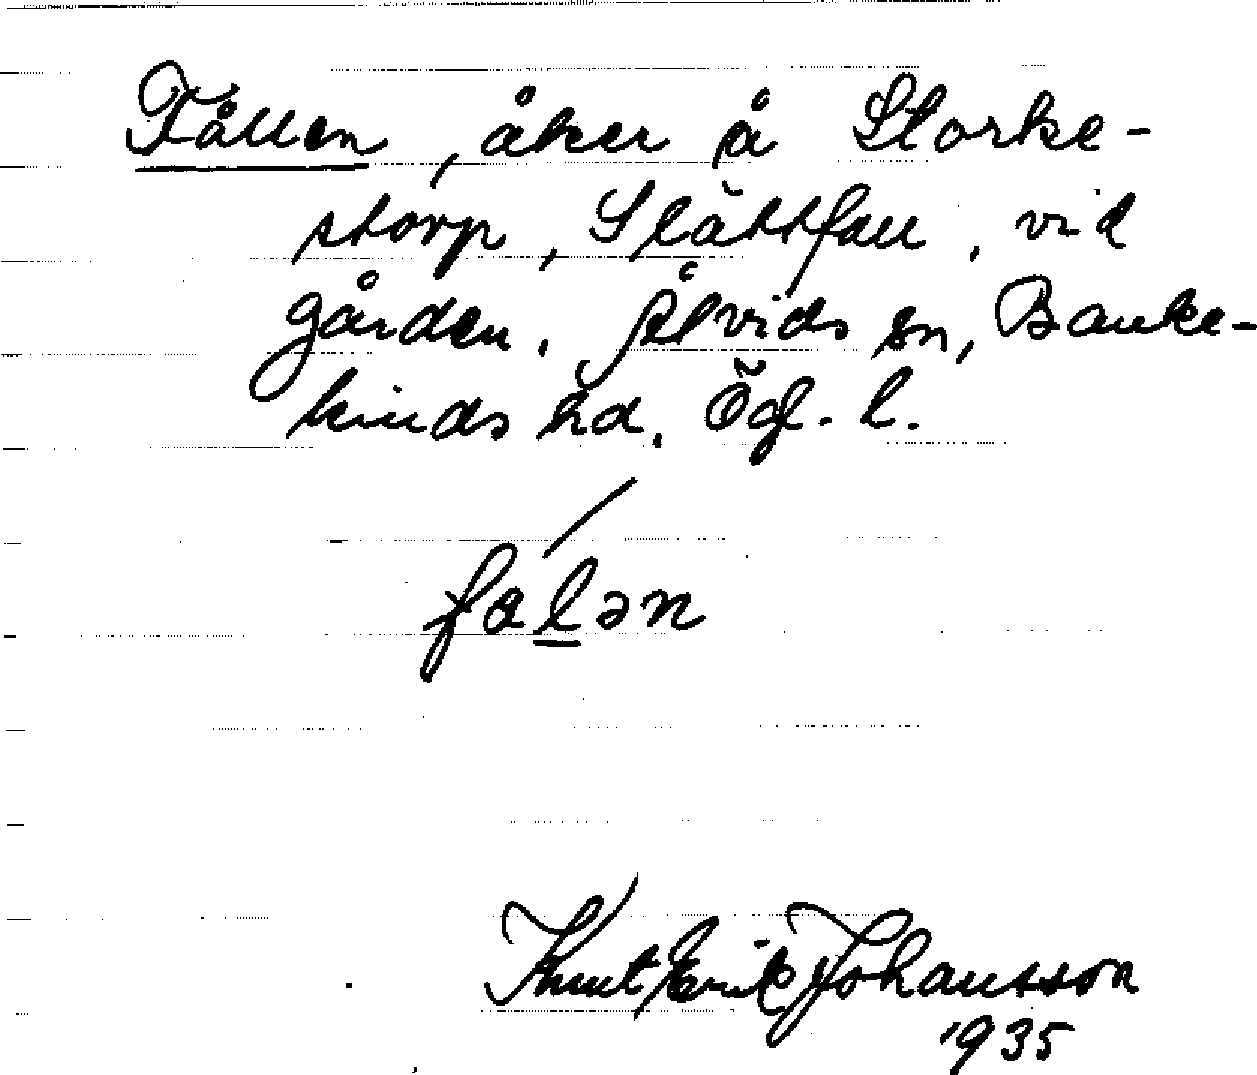 Fållen, åker å Storke-
storp, Slättfall, vid
gården. Ålvids sn, Banke-
kinds hd. Ögl. l.
falən
Knut Erik Johansson
1935